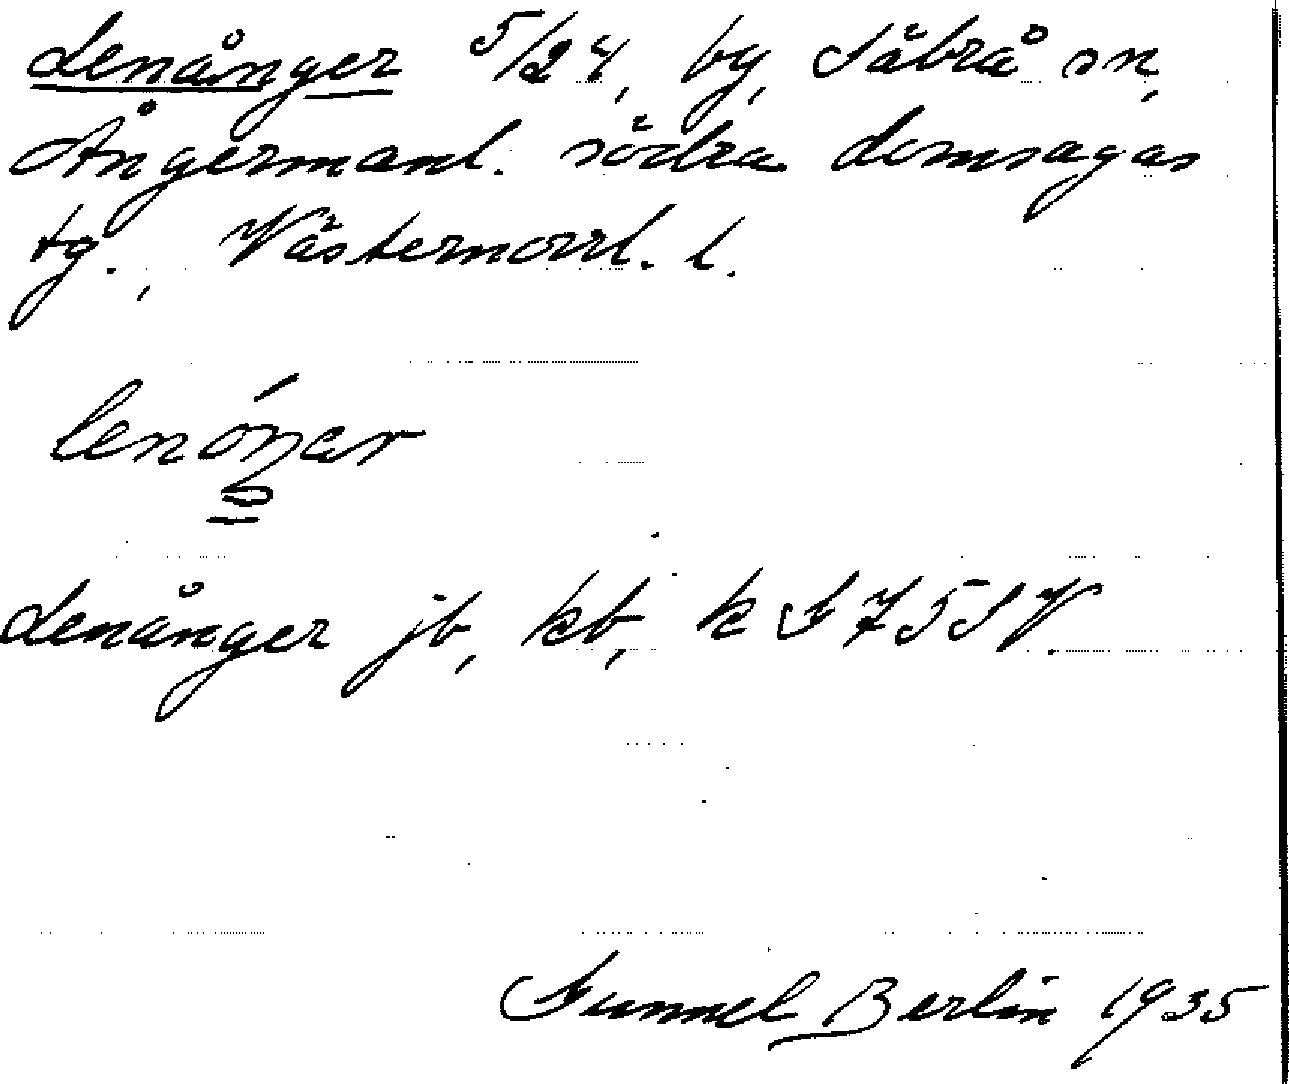 Lenånger 5/24, by, Säbrå sn,
Ångermanl. södra domsagas
tg., Västernorrl. l.
lenóŋar
Lenånger jb, kb, k F 75 SV.
Gunnel Berlin 1935